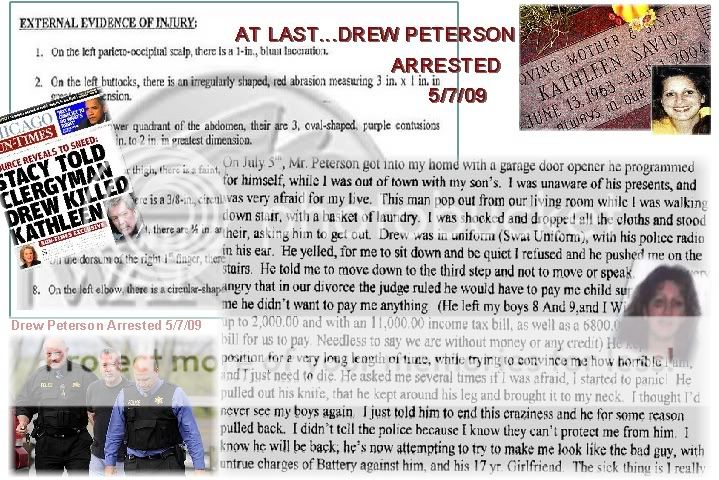 EXTERNAL EVIDENCE OF INJURY:
1. On the left parieto-occipital scalp, there is a 1-in., blunt laceration.
2. On the left buttocks, there is an irregularly shaped, red abrasion measuring 3 in. x 1 in. in
wer quadrant of the abdomen, their are 3, oval-shaped, purple contusions
in. to 2 in. in greatest dimension.
thigh, there is a faint,
ere is a 3/8-in., circul
t, there are ½ in.
On the dorsum of the right 1st finger, there
8. On the left elbow, there is a circular-shap
AT LAST...DREW PETERSON
ARRESTED
5/7/09
VING MOTHER SISTER
KATHLEEN SAVIO
JUNE 13, 1963 MA 2004
ALWAYS IN OUR
CHICAGO
SUN-TIMES
SOURCE REVEALS TO SNEED:
STACY TOLD
CLERGYMAN
DREW KILLED
KATHLEEN
SUN-TIMES EXCLUSIVE
On July 5th, Mr. Peterson got into my home with a garage door opener he programmed
for himself, while I was out of town with my son's. I was unaware of his presents, and
was very afraid for my live. This man pop out from our living room while I was walking
down stair, with a basket of laundry. I was shocked and dropped all the cloths and stood
their, asking him to get out. Drew was in uniform (Swat Uniform), with his police radio
in his ear. He yelled, for me to sit down and be quiet I refused and he pushed me on the
stairs. He told me to move down to the third step and not to move or speak.
angry that in our divorce the judge ruled he would have to pay me child sup
me he didn't want to pay me anything. (He left my boys 8 And 9,and I Wi
up to 2,000.00 and with an 11,000.00 income tax bill, as well as a 6800.0
bill for us to pay. Needless to say we are without money or any credit) He
position for a very long length of time, while trying to convince me how horrible I am,
and I just need to die. He asked me several times if I was afraid, I started to panic! He
pulled out his knife, that he kept around his leg and brought it to my neck. I thought I'd
never see my boys again. I just told him to end this craziness and he for some reason
pulled back. I didn't tell the police because I know they can't protect me from him. I
know he will be back; he's now attempting to try to make me look like the bad guy, with
untrue charges of Battery against him, and his 17 yr. Girlfriend. The sick thing is I really
Drew Peterson Arrested 5/7/09
Protect mo